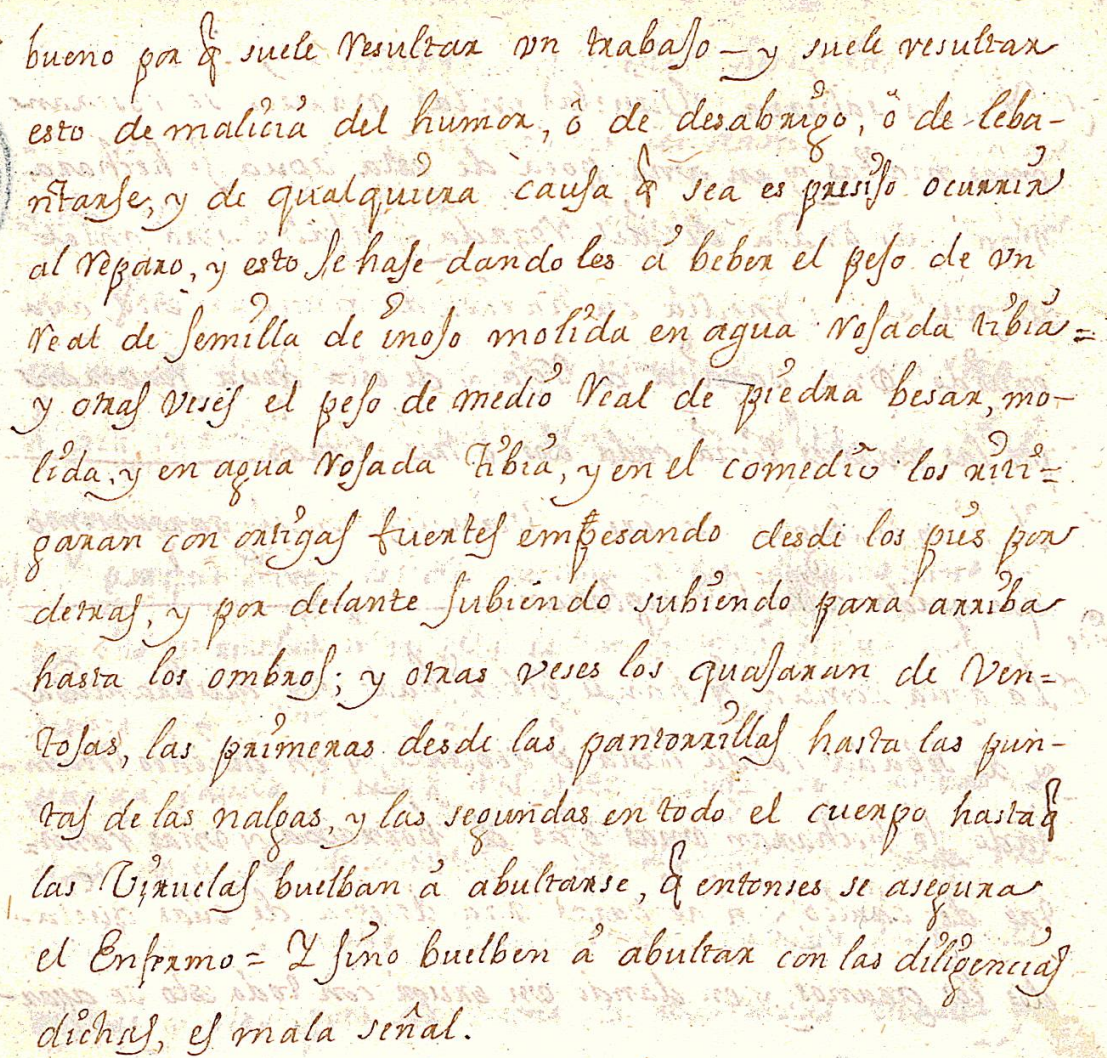 bueno por q̃ suele resultar vn trabajo – y suele resultar
esto de malicia del humor, ô de desabrigo, ô de leba-
ntarse, y de qualquiera causa q̃ sea es presiso ocurrir
al reparo, y esto se hase dandoles â beber el peso de vn
real de semilla de inojo molida en agua rosada tibia =
y otras veses el peso de medio real de piedra besar, mo-
lida, y en agua rosada tibia, y en el comedio los riti=
garan con ortigas fuertes empesando desde los pies por
detras, y por delante subiendo subiendo para arriba
hasta los ombros; y otras veses los quajaran de ven=
tosas, las primeras desde las pantorrillas hasta las pun-
tas de las nalgas, y las segundas en todo el cuerpo hasta q̃
las Viruelas buelban â abultarse, q̃ entonses se asegura
el Enfermo = Y sino buelben â abultar con las diligencias
dichas, es mala señal.